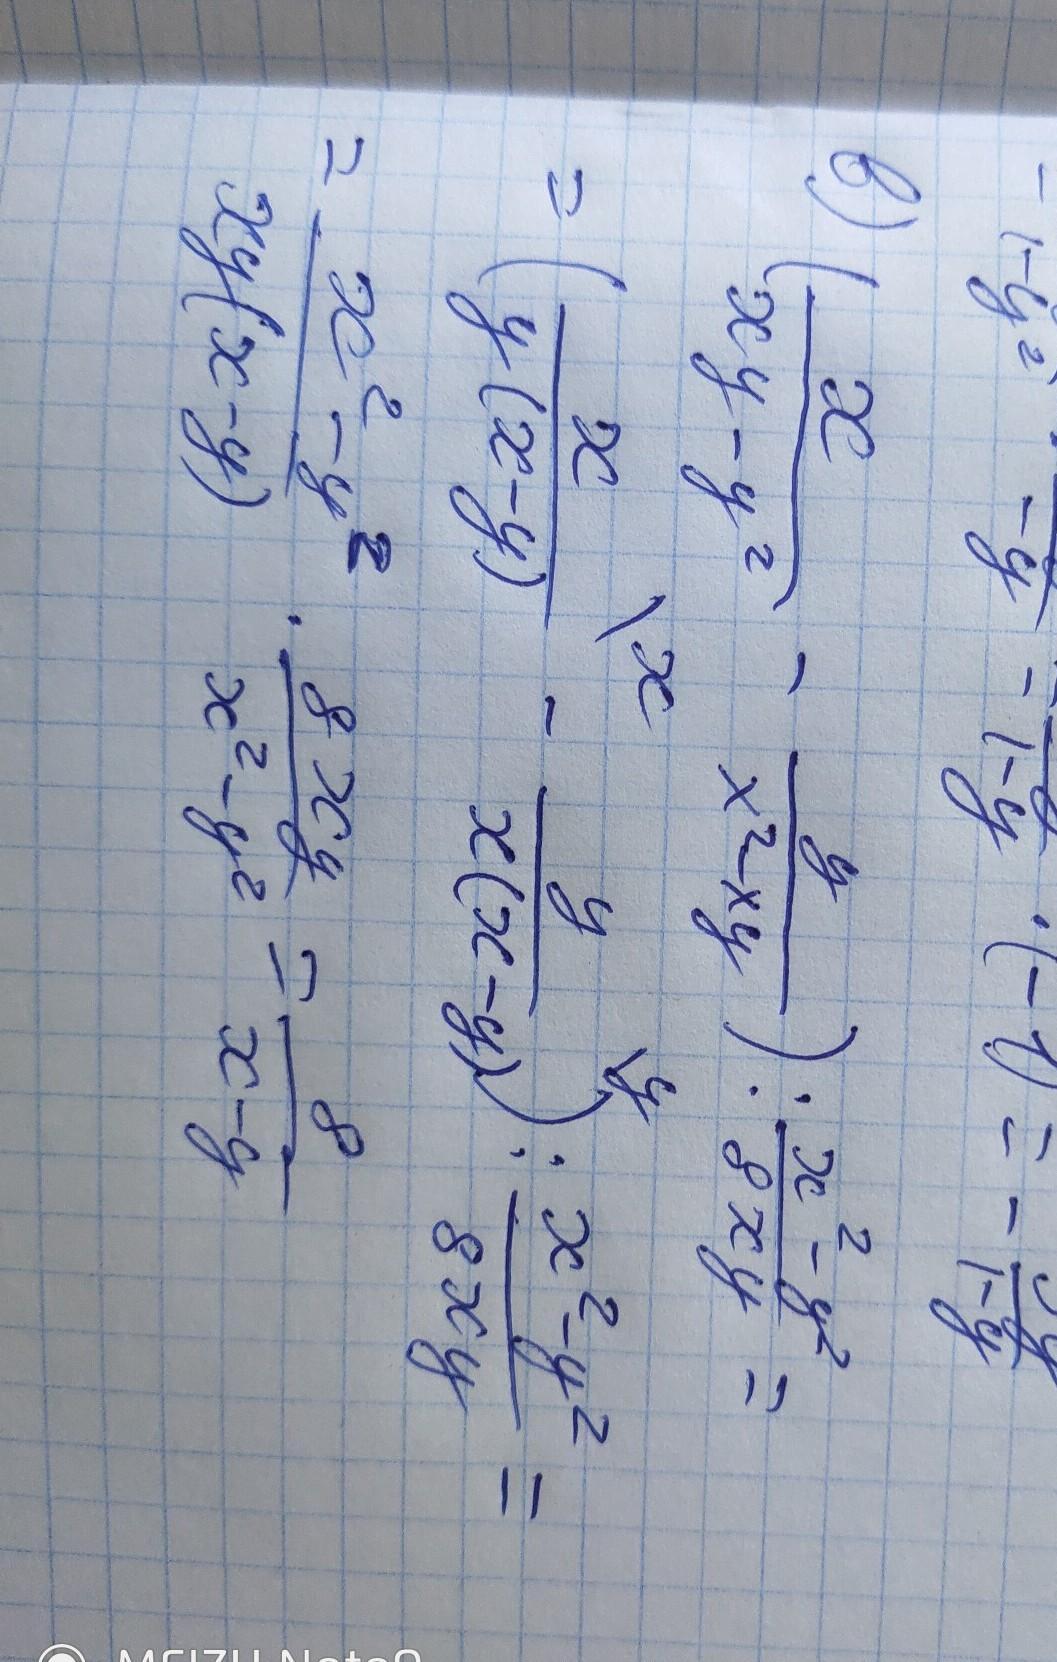 - 1-y² - y - 1-y · (-1) = - 1-y
в) (x/(xy-y²) - y/(x²-xy)) : (x²-y²)/(8xy) =
= (x/(y(x-y)) \x - y/(x(x-y)) \y) : (x²-y²)/(8xy) =
= (x²-y²)/(xy(x-y)) · (8xy)/(x²-y²) = 8/(x-y)
MEIZU Note8